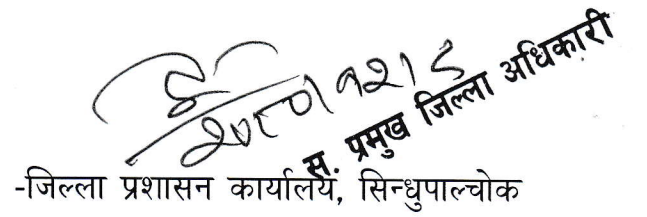 स. प्रमुख जिल्ला अधिकारी
-जिल्ला प्रशासन कार्यालय, सिन्धुपाल्चोक